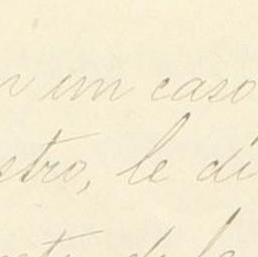 n un caso
stro, le di